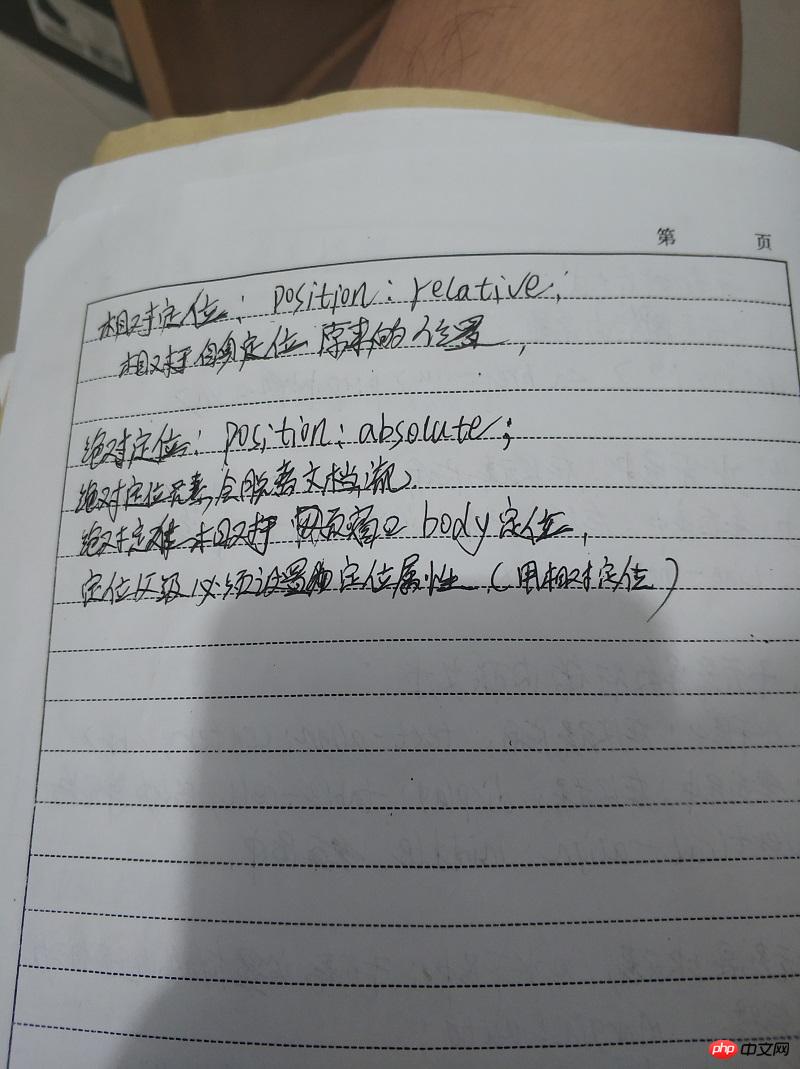 第 页
相对定位: position: relative;
相对于自身定位 原来的位置,
绝对定位: position: absolute;
绝对定位元素,会脱离文档流)
绝对定位 相对于 body定位,
定位父级必须设置 定位属性 (用相对定位)
php 中文网